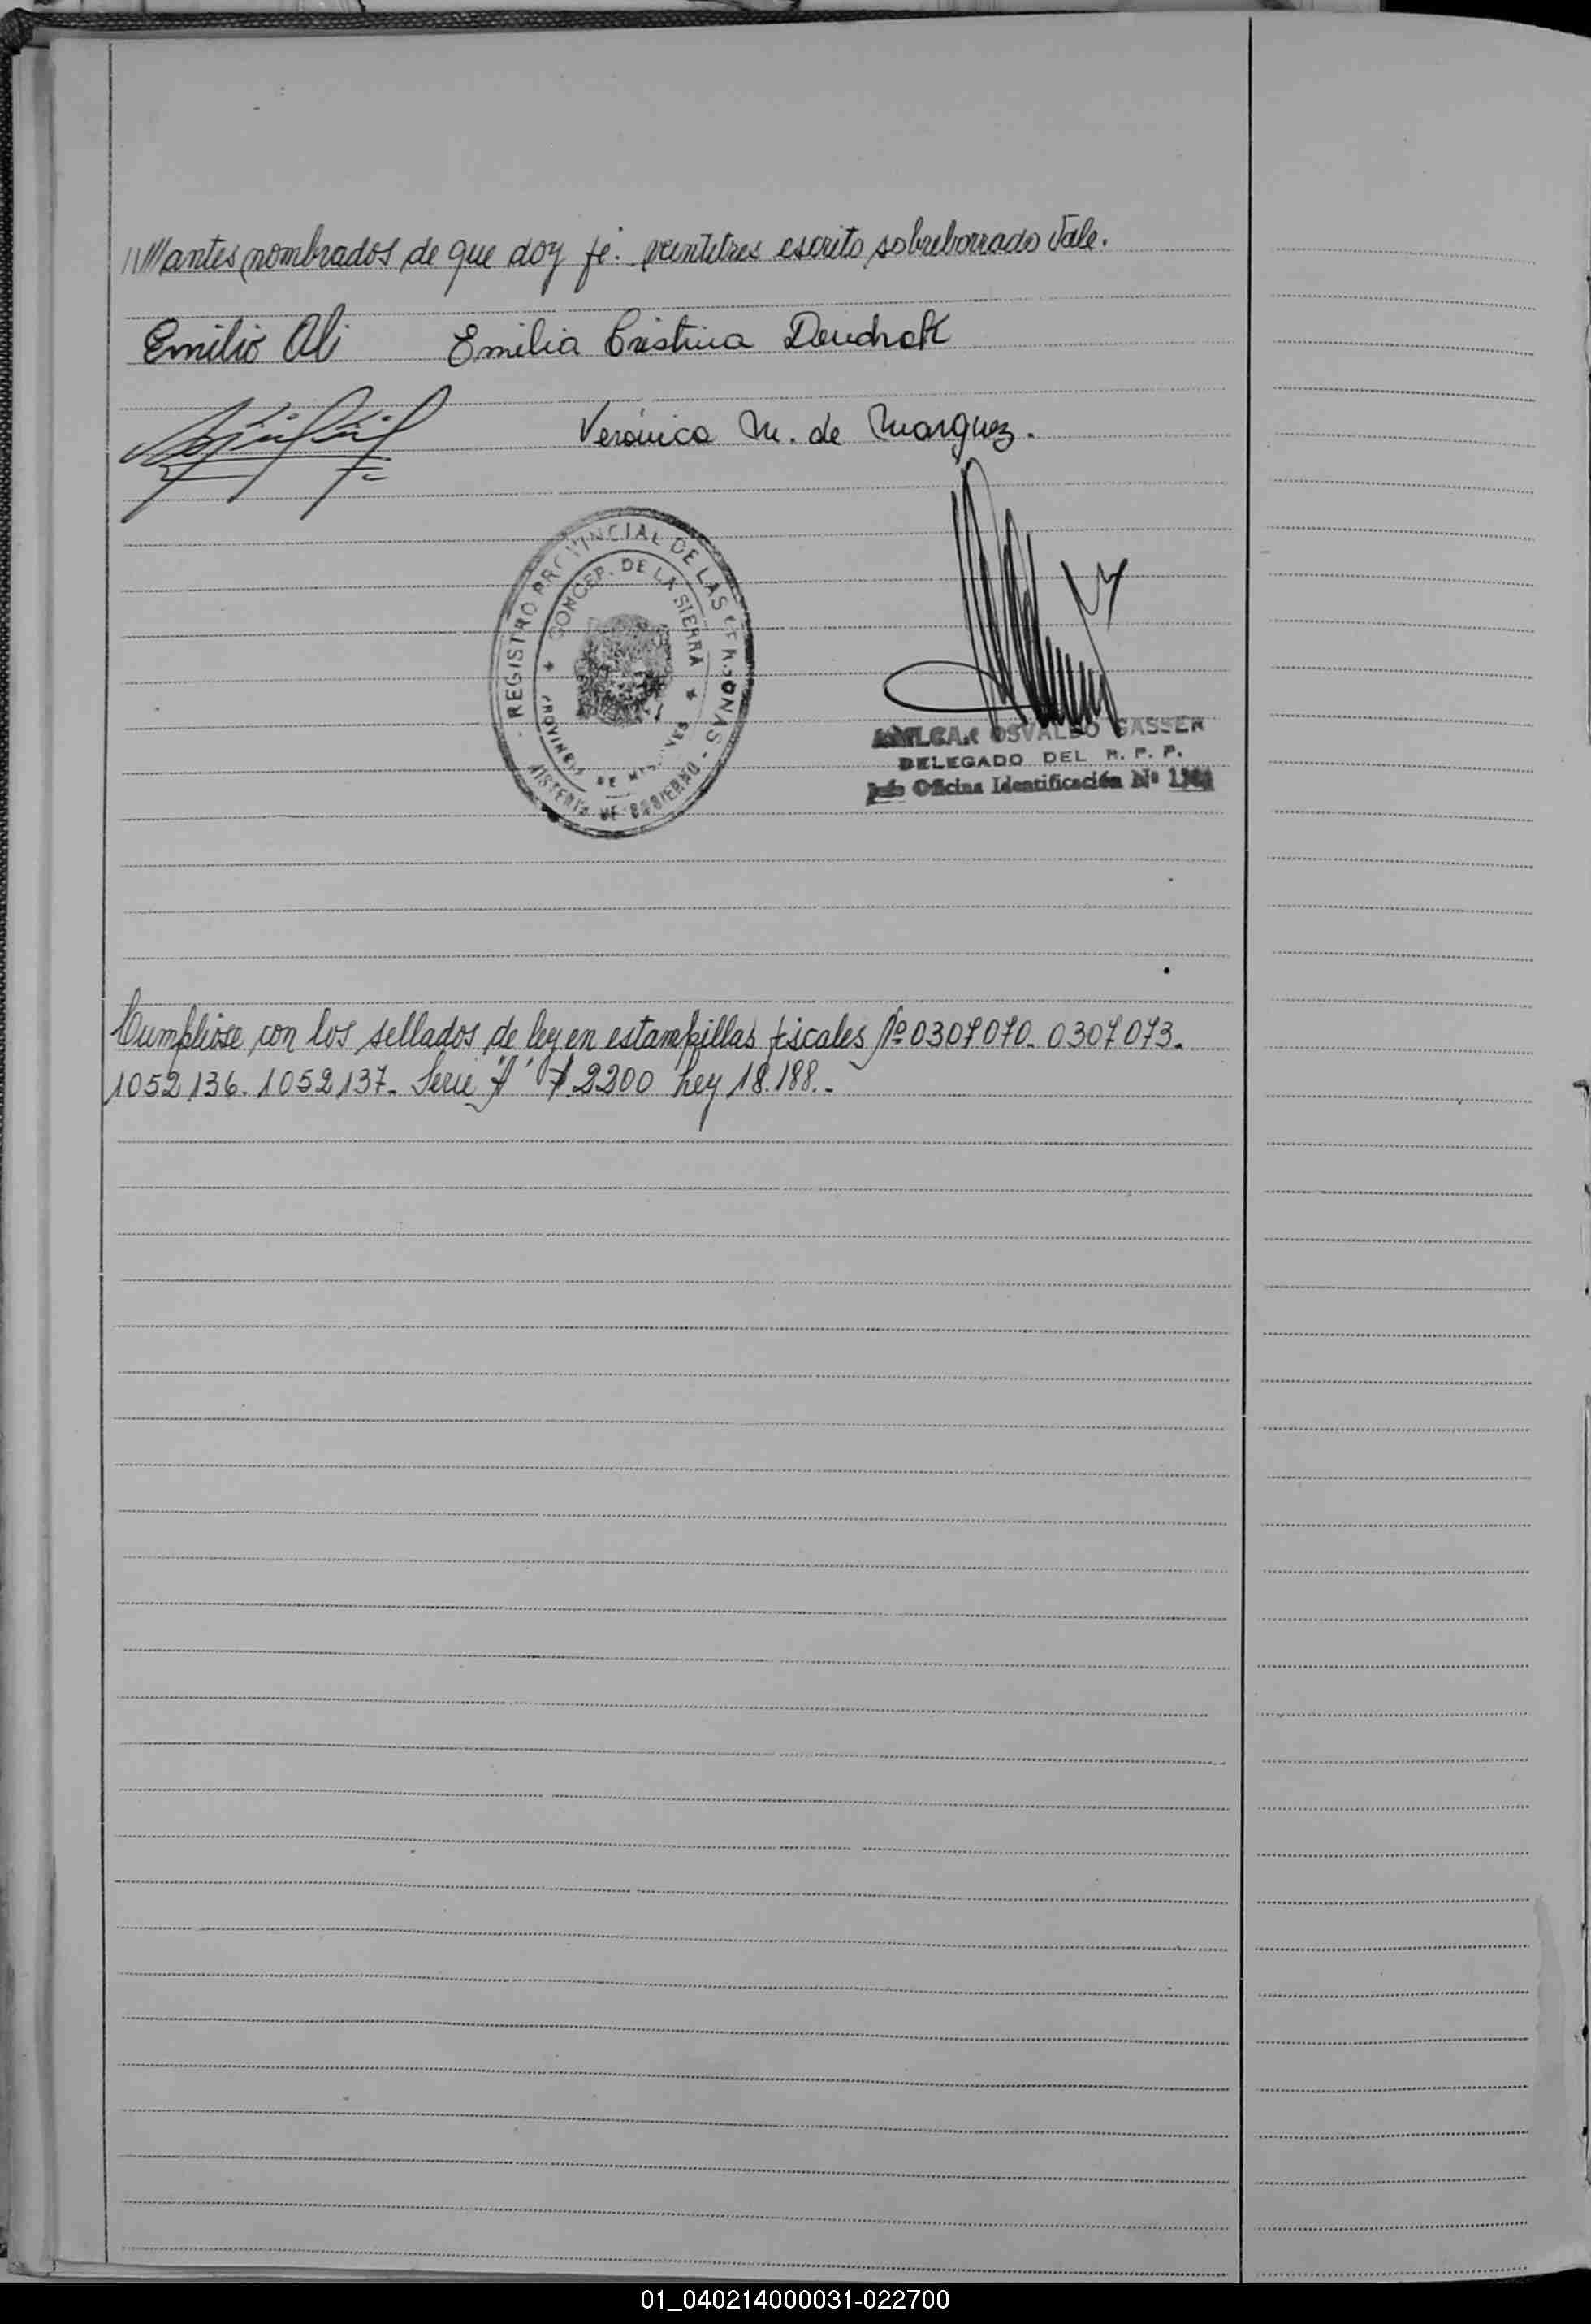 ////antes nombrados de que doy fé. veintitres escrito sobreborrado Vale.
Emilio Oli Emilia Cristina Dendrok
Verónica M. de Marquez.
REGISTRO PROVINCIAL DE LAS PERSONAS
CONCEP. DE LA SIERRA
PROVINCIA DE MISIONES
MISTERIO DE GOBIERNO
AMILCAR OSVALDO GASSER
DELEGADO DEL R. P. P.
Jefe Oficina Identificación Nº
Cumpliose con los sellados de ley en estampillas fiscales Nº 0307070. 0307073.
1052136. 1052137. Serie "A" $ 2200 Ley 18.188.-
01_040214000031-022700